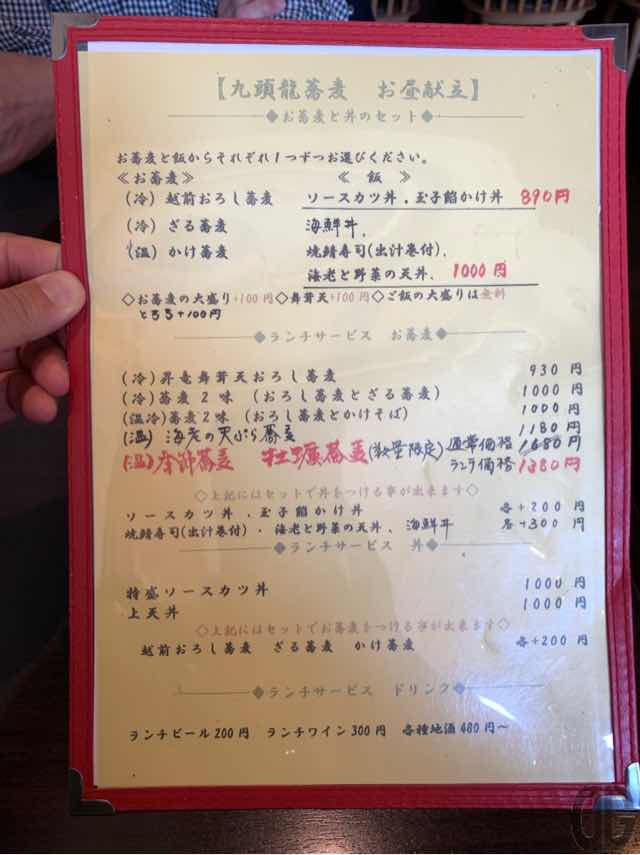 【九頭龍蕎麦 お昼献立】
◆お蕎麦と丼のセット◆
お蕎麦と飯からそれぞれ1つずつお選びください。
≪お蕎麦≫ ≪飯≫
(冷) 越前おろし蕎麦 ソースカツ丼，玉子餡かけ丼 890円
(冷) ざる蕎麦 海鮮丼,
(温) かけ蕎麦 焼鯖寿司(出汁巻付),
海老と野菜の天丼、 1000円
◇お蕎麦の大盛り+100円◇舞茸天+100円◇ご飯の大盛りは無料
とろろ+100円
◆ランチサービス お蕎麦◆
(冷)昇竜舞茸天おろし蕎麦 930 円
(冷)蕎麦2味 (おろし蕎麦とざる蕎麦) 1000 円
(温冷)蕎麦2味 (おろし蕎麦とかけそば) 1000 円
(温) 海老の天ぷら蕎麦 1180 円
(温) 牡蠣蕎麦(数量限定) 通常価格 1680 円
ランチ価格 1380円
◇上記にはセットで丼をつける事が出来ます◇
ソースカツ丼，玉子餡かけ丼 各+200 円
焼鯖寿司(出汁巻付)・海老と野菜の天丼、海鮮丼 各+300 円
◆ランチサービス 丼◆
特盛ソースカツ丼 1000 円
上天丼 1000 円
◇上記にはセットでお蕎麦をつける事が出来ます◇
越前おろし蕎麦 ざる蕎麦 かけ蕎麦 各+200 円
◆ランチサービス ドリンク◆
ランチビール200円 ランチワイン300円 各種地酒480円～